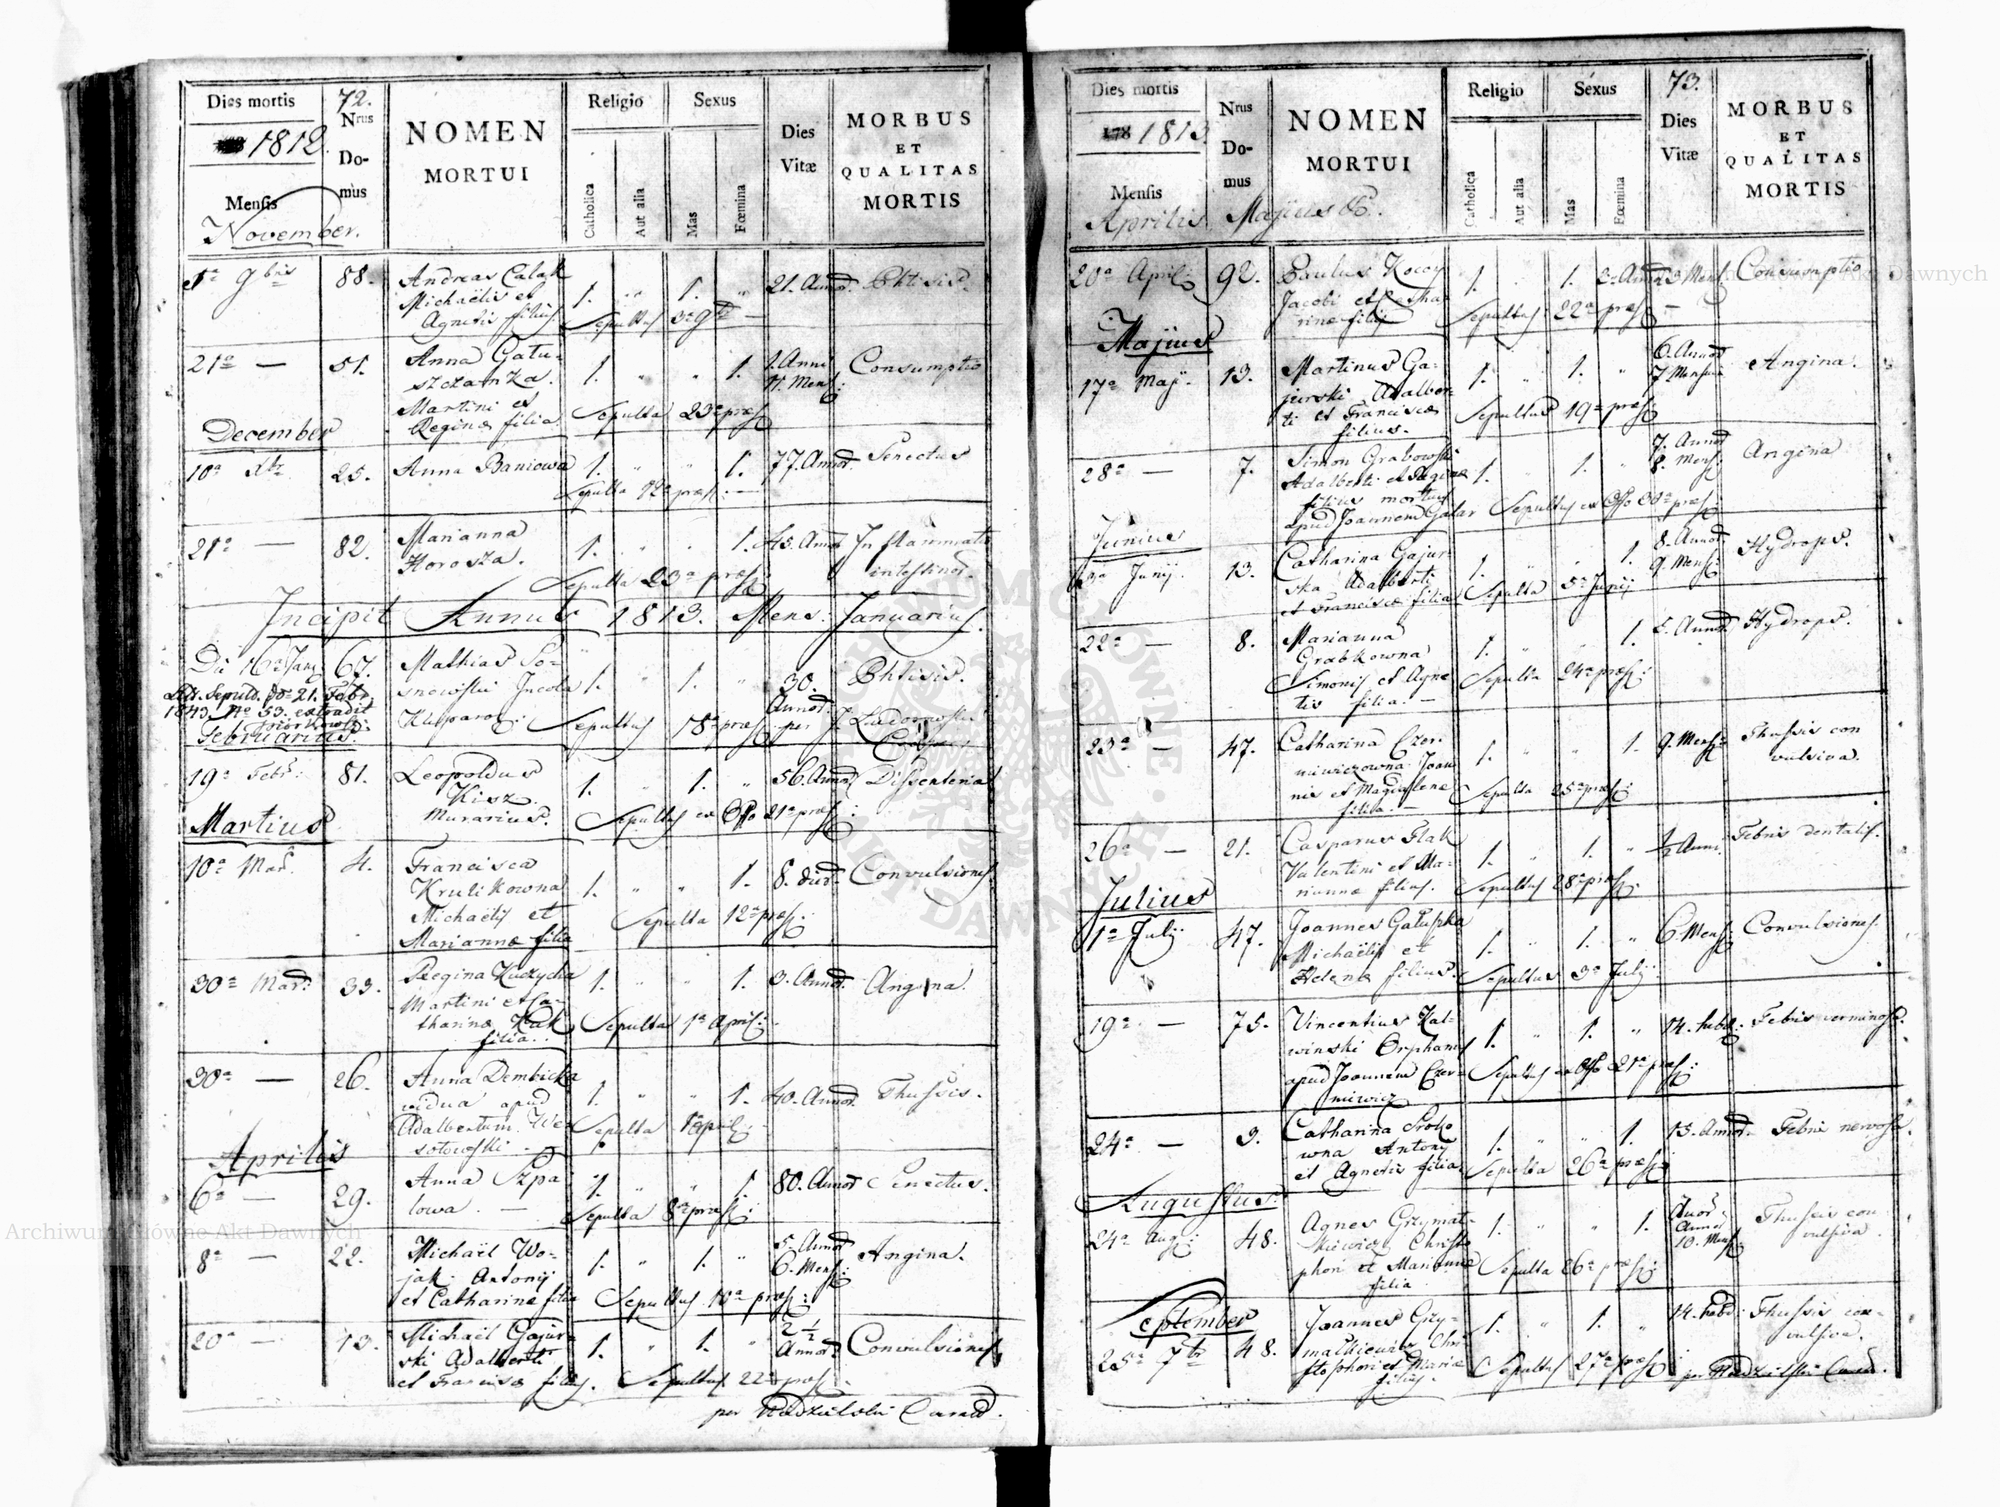 Dies mortis
1812.
Mensis
November.
72.
Nrus
Do-
mus
NOMEN
MORTUI
Religio
Catholica
Aut alia
Sexus
Mas
Fœmina
Dies
Vitæ
MORBUS
ET
QUALITAS
MORTIS
1a 9bris 88. Andreas Calak
Michaëlis et
Agnetis filius. 1. " 1. " 21. Annor. Phtisis.
Sepultus 3a 9bris —
21a — 51. Anna Gatu-
szczanka.
Martini et
Reginæ filia 1. " " 1. 1. Anni
11. Mens: Consumptio
Sepulta 23a præs:
December
10a Xbr 25. Anna Baniowa 1. " " 1. 77. Annor. Senectus
Sepulta 12a præs: —
21a — 82. Marianna
Horoszka. 1. " " 1. 45. Annor Inflammatio
intestinor.
Sepulta 23a præs:
Incipit Annus 1813. Mens: Januarius.
Die 16a Jany 67. Mathias So-
snowski Incola
Kleparov: 1. " 1. " 30.
Annor. Phtisis.
Sepultus 18a præs:
1843. No 53. extradit
Februarius.
19a Febr: 81. Leopoldus
Kisz
Murarius. 1. " 1. " 56. Annor Dissenteria
Sepultus ex Offo 21a præs:
Martius
10a Mar. 4. Francisca
Krulikowna
Michaëlis et
Mariannæ filia 1. " " 1. 8. dier. Convulsiones.
Sepulta 12a præs:
30a Mar: 33. Regina Kuczycha
Martini et Ca-
tharinæ Kuk
filia. 1. " " 1. 3. Annor. Angina.
Sepulta 1a April:
30a — 26. Anna Dembicka
vidua apud
Adalbertum We-
sołowski — 1. " " 1. 40. Annor. Thussis.
Sepulta 1a april:
Aprilis
6a — 29. Anna Szpa-
lowa. — 1. " " 1. 80. Annor Senectus.
Sepulta 8a præs:
8a — 22. Michaël Wo-
jak. Antonij
et Catharinæ filia 1. " 1. " 5. Annor
6. Mens: Angina.
Sepultus 10a præs:
20a — 13. Michaël Gajur-
ski Adalberti
et Francisæ filius. 1. " 1. " 2 1/2
Annor Convulsiones
Sepultus 22a præs.
per Nadzielski Curad.
Dies mortis
178 1813.
Mensis
Aprilis. Majus &c.
Nrus
Do-
mus
NOMEN
MORTUI
Religio
Catholica
Aut alia
Sexus
Mas
Fœmina
73.
Dies
Vitæ
MORBUS
ET
QUALITAS
MORTIS
20a April: 92. Paulus Kocoy
Jacobi et Catha-
rinæ filius 1. " 1. 2. Annor 3 Mens. Consumptio
Sepultus 22a præs: —
Majus
17a Maji. 13. Martinus Ga-
jurski Adalber-
ti et Franciscæ
filius. 1. " 1. " 6. Annor
7. Mensium Angina.
Sepultus 19a præs:
28a — 7. Simon Grabowski
Adalberti et Reginæ
filius mortuus
apud Joannem Galar 1. " 1. " 7. Annor
8. Mens: Angina
Sepultus ex Offo 30a præs:
Junius
3a Junij. 13. Catharina Gajur-
ska Adalberti
et Franciscæ filia 1. " " 1. 8. Annor
9. Mens: Hydrops.
Sepulta 5a Junij
22a — 8. Marianna
Grabkowna
Simonis et Agne-
tis filia. — 1. " " 1. 5. Annor. Hydrops.
Sepulta 24a præs:
23a — 47. Catharina Czer-
niewiczowna Joan-
nis et Magdalenæ
filia. — 1. " " 1. 9. Mens: Thussis con
vulsiva.
Sepulta 25a præs:
26a — 21. Casparus Flak
Valentini et Ma-
riannæ filius. 1. " 1. " 1/2 Anni. Febris dentalis.
Sepultus 28a præs:
Julius
1a Julij 47. Joannes Gałuszka
Michaëlis et
Helenæ filius. 1. " 1. " 6. Mens: Convulsiones.
Sepultus 3a Julij:
19a — 75. Vincentius Kal-
winski Orphanus
apud Joannem Czer-
niewicz 1. " 1. " 14. hebd: Febris verminosa.
Sepultus ex Offo 21a præs:
24a — 9. Catharina Sroko
wna Antonij
et Agnetis filia. 1. " " 1. 13. Annor. Febris nervosa.
Sepulta 26a præs:
Augustus
24a Aug: 48. Agnes Grzymal-
kiewicz Christo
phori et Mariannæ
filia 1. " " 1. Annor
10. Mens: Thussis con-
vulsiva.
Sepulta 26a præs:
September
25a 7br 48. Joannes Grzy-
małkiewicz Chri
stophori et Mariæ
filius. 1. " 1. " 14. hebd: Thussis con-
vulsiva.
Sepultus 27a præs:
per Nadzielski Curad.
Archiwum Główne Akt Dawnych
ARCHIWUM GŁÓWNE AKT DAWNYCH